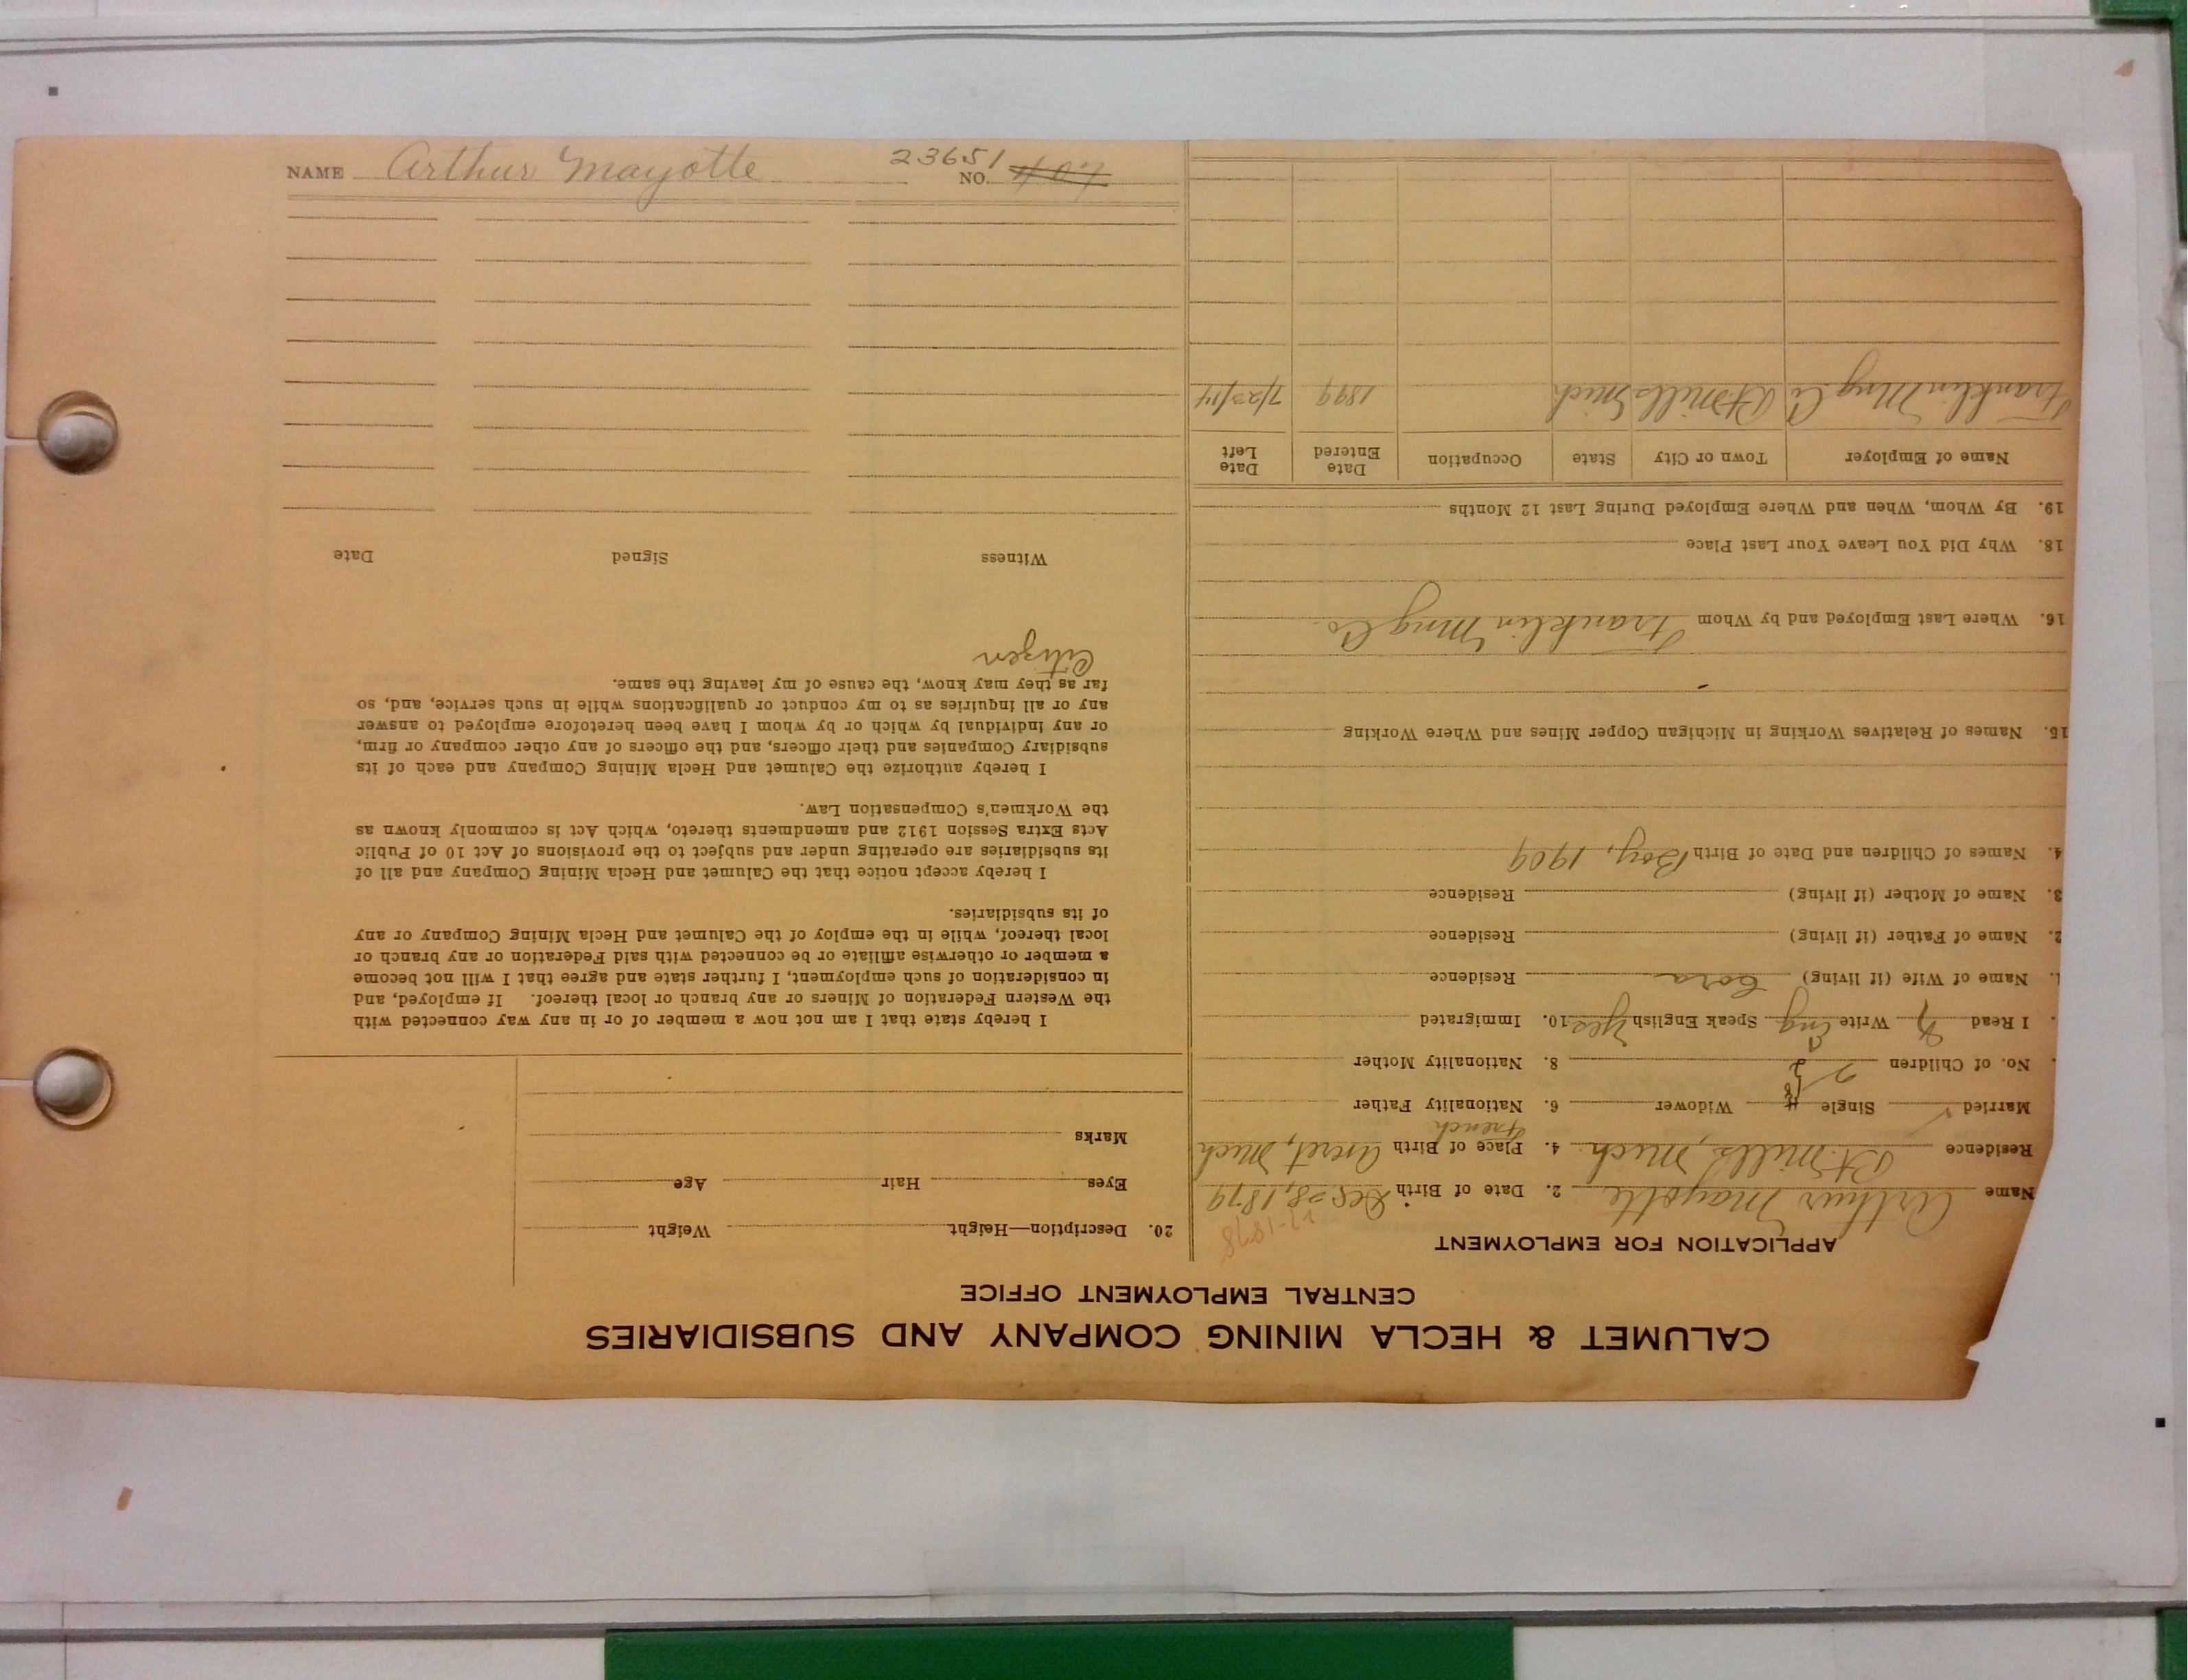 CALUMET & HECLA MINING COMPANY AND SUBSIDIARIES
CENTRAL EMPLOYMENT OFFICE
APPLICATION FOR EMPLOYMENT
27-1878
Name Arthur Mayotte 2. Date of Birth Dec 28, 1879
Residence Pt. Mills, Mich 4. Place of Birth Mich
French
Married Single Widower 6. Nationality Father
No. of Children 2 8. Nationality Mother
I Read Write Eng Speak English yes 10. Immigrated
1. Name of Wife (if living) Cora Residence
2. Name of Father (if living) Residence
3. Name of Mother (if living) Residence
4. Names of Children and Date of Birth Boy, 1909
15. Names of Relatives Working in Michigan Copper Mines and Where Working
16. Where Last Employed and by Whom Franklin Mng Co
18. Why Did You Leave Your Last Place
19. By Whom, When and Where Employed During Last 12 Months
Name of Employer Town or City State Occupation Date Entered Date Left
Franklin Mng Co Pt. Mills Mich 1899 7/23/14
20. Description—Height Weight
Eyes Hair Age
Marks
I hereby state that I am not now a member of or in any way connected with
the Western Federation of Miners or any branch or local thereof. If employed, and
in consideration of such employment, I further state and agree that I will not become
a member or otherwise affiliate or be connected with said Federation or any branch or
local thereof, while in the employ of the Calumet and Hecla Mining Company or any
of its subsidiaries.
I hereby accept notice that the Calumet and Hecla Mining Company and all of
its subsidiaries are operating under and subject to the provisions of Act 10 of Public
Acts Extra Session 1912 and amendments thereto, which Act is commonly known as
the Workmen's Compensation Law.
I hereby authorize the Calumet and Hecla Mining Company and each of its
subsidiary Companies and their officers, and the officers of any other company or firm,
or any individual by which or by whom I have been heretofore employed to answer
any or all inquiries as to my conduct or qualifications while in such service, and, so
far as they may know, the cause of my leaving the same.
Citizen
Witness Signed Date
NAME Arthur Mayotte NO. 23651 407